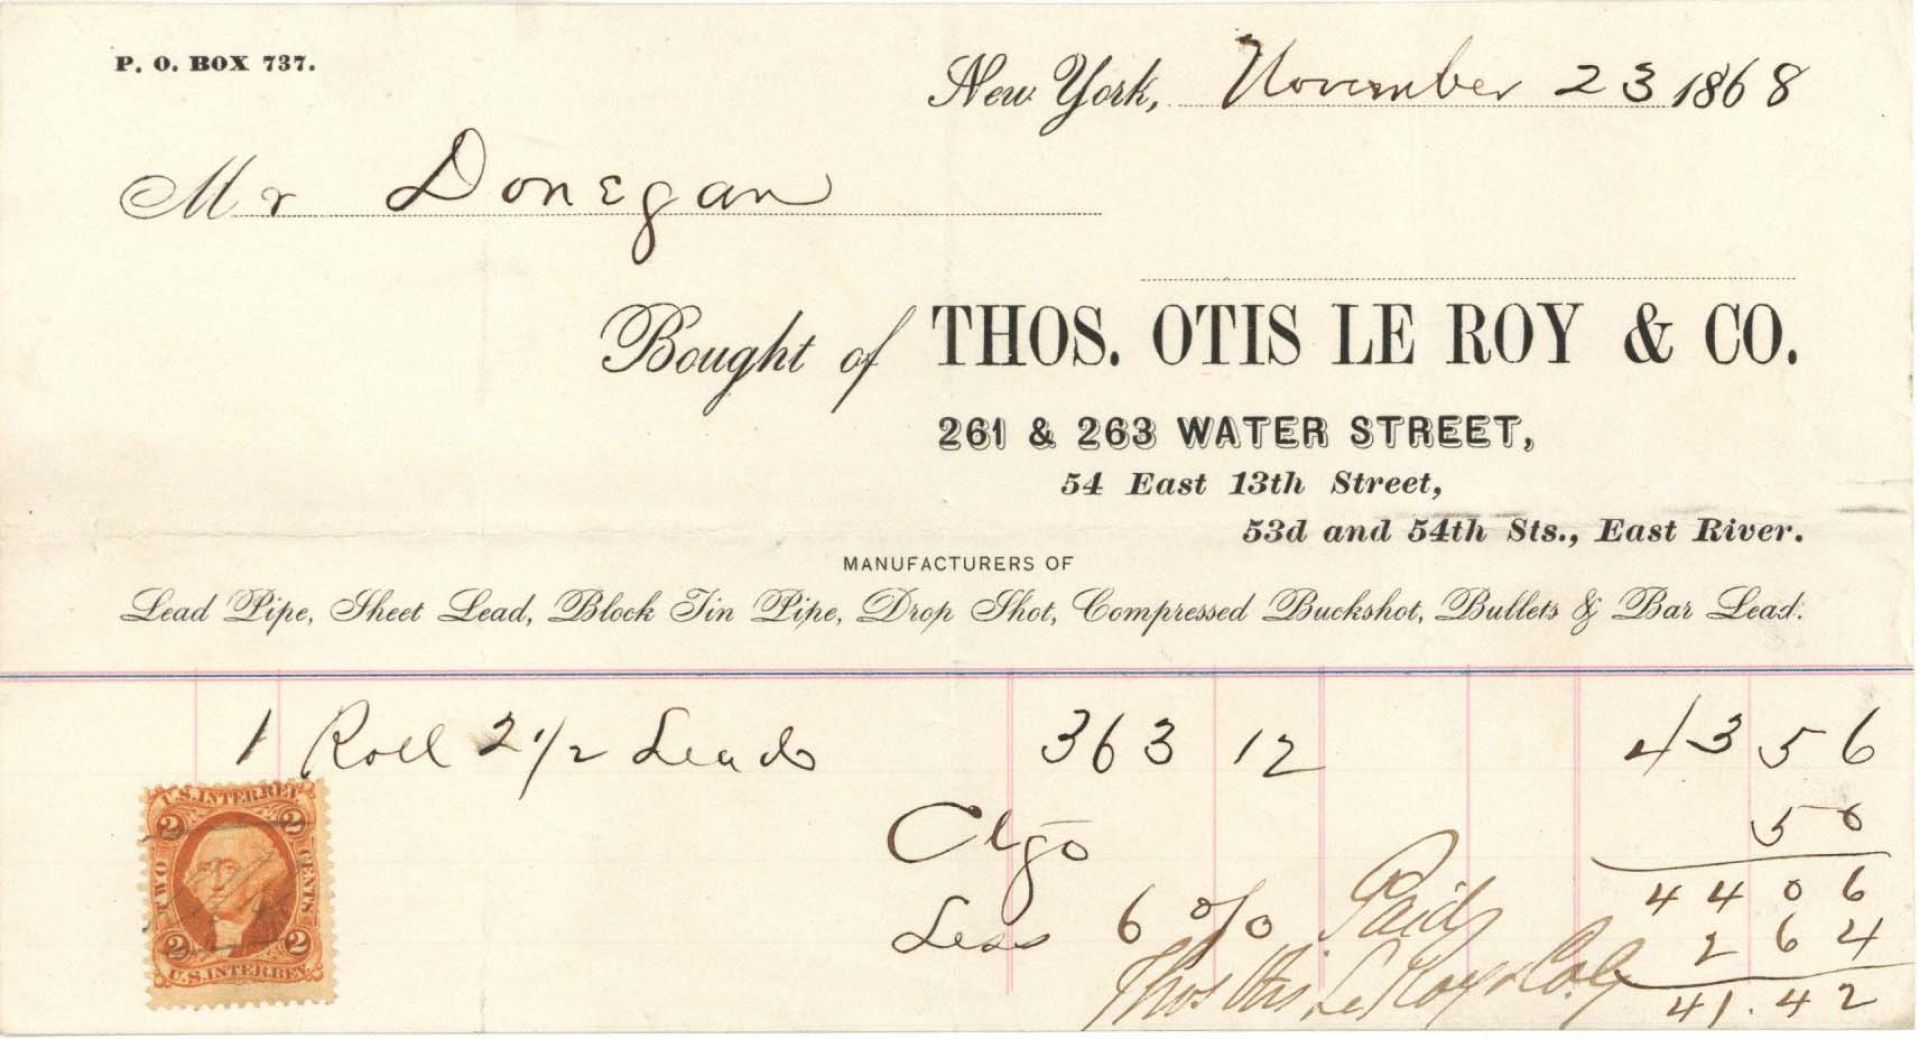 P. O. BOX 737.
New York, November 23 1868
Mr Donegan
Bought of THOS. OTIS LE ROY & CO.
261 & 263 WATER STREET,
54 East 13th Street,
53d and 54th Sts., East River.
MANUFACTURERS OF
Lead Pipe, Sheet Lead, Block Tin Pipe, Drop Shot, Compressed Buckshot, Bullets & Bar Lead.
1 Roll 2 1/2 Lead 363 12 43 56
Ctgo 50
44 06
Less 6 % 2 64
Paid
Thos Otis Le Roy & Co.
41.42
U.S. INTER. REV.
2 2
TWO CENTS
2 2
U.S. INTER. REV.